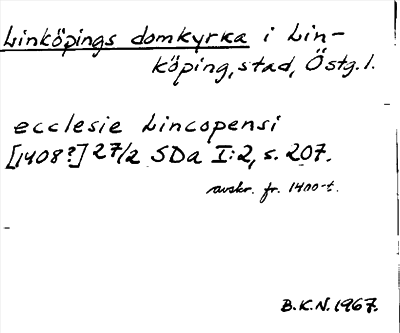 Linköpings domkyrka i Lin-
köping, stad, Östg. l.
ecclesie Lincopensi
[1408?] 27/2 SDa I:2, s. 207.
avskr. fr. 1400-t.
B.K.N. 1967.